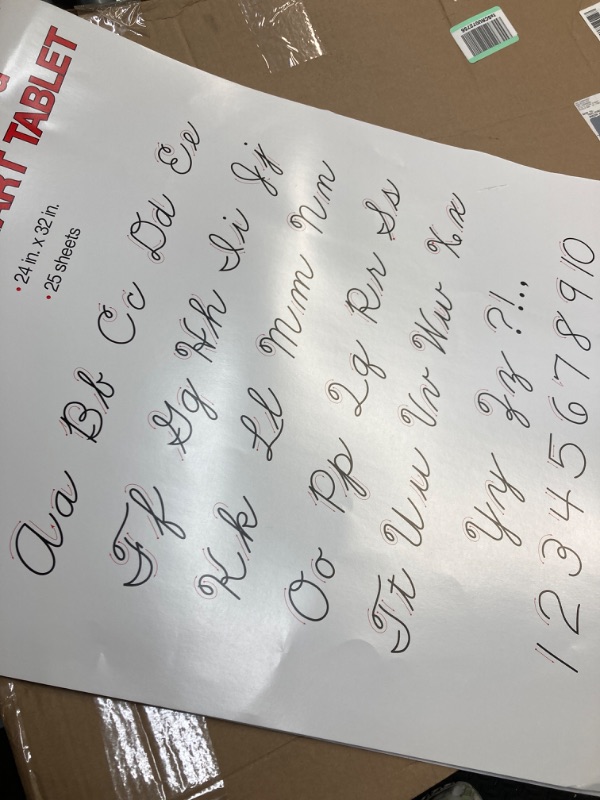 ART TABLET
• 24 in. x 32 in.
• 25 sheets
Aa Bb Cc Dd Ee
Ff Gg Hh Ii Jj
Kk Ll Mm Nn
Oo Pp Qq Rr Ss
Tt Uu Vv Ww Xx
Yy Zz ?!.,
1 2 3 4 5 6 7 8 9 10